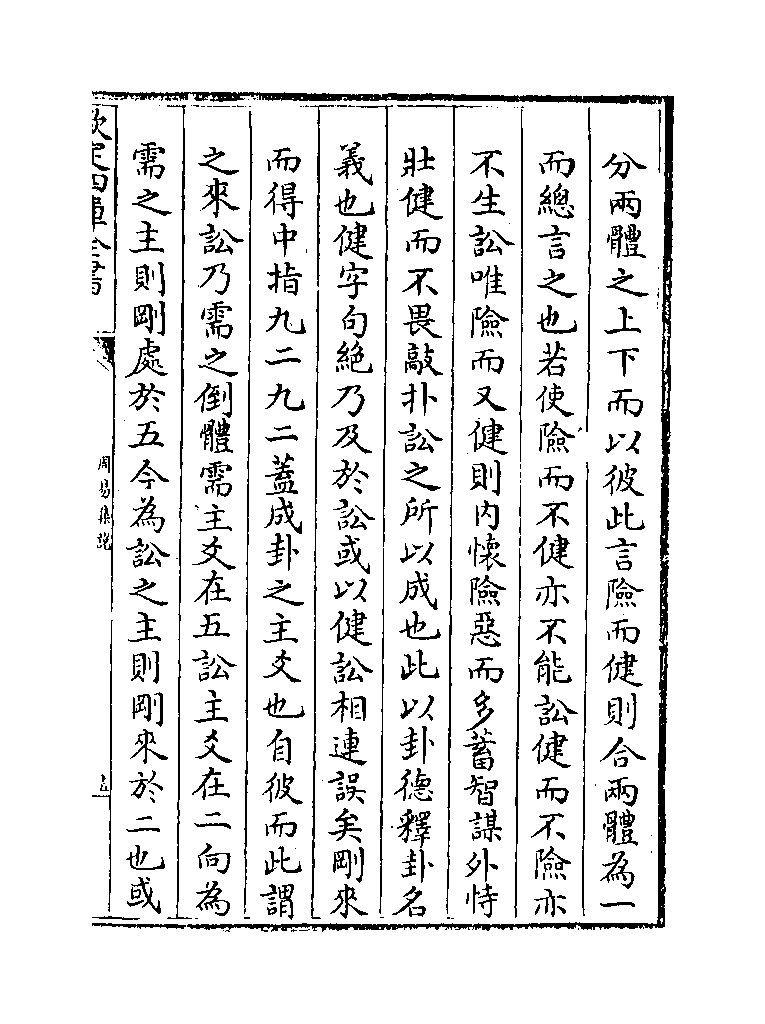 分兩體之上下而以彼此言險而健則合兩體為一
而總言之也若使險而不健亦不能訟健而不險亦
不生訟唯險而又健則内懷險惡而多蓄智謀外恃
壯健而不畏敲扑訟之所以成也此以卦德釋卦名
義也健字句絶乃及於訟或以健訟相連誤矣剛來
而得中指九二九二蓋成卦之主爻也自彼而此謂
之來訟乃需之倒體需主爻在五訟主爻在二向為
需之主則剛處於五今為訟之主則剛來於二也或
欽定四庫全書
周易集說
五